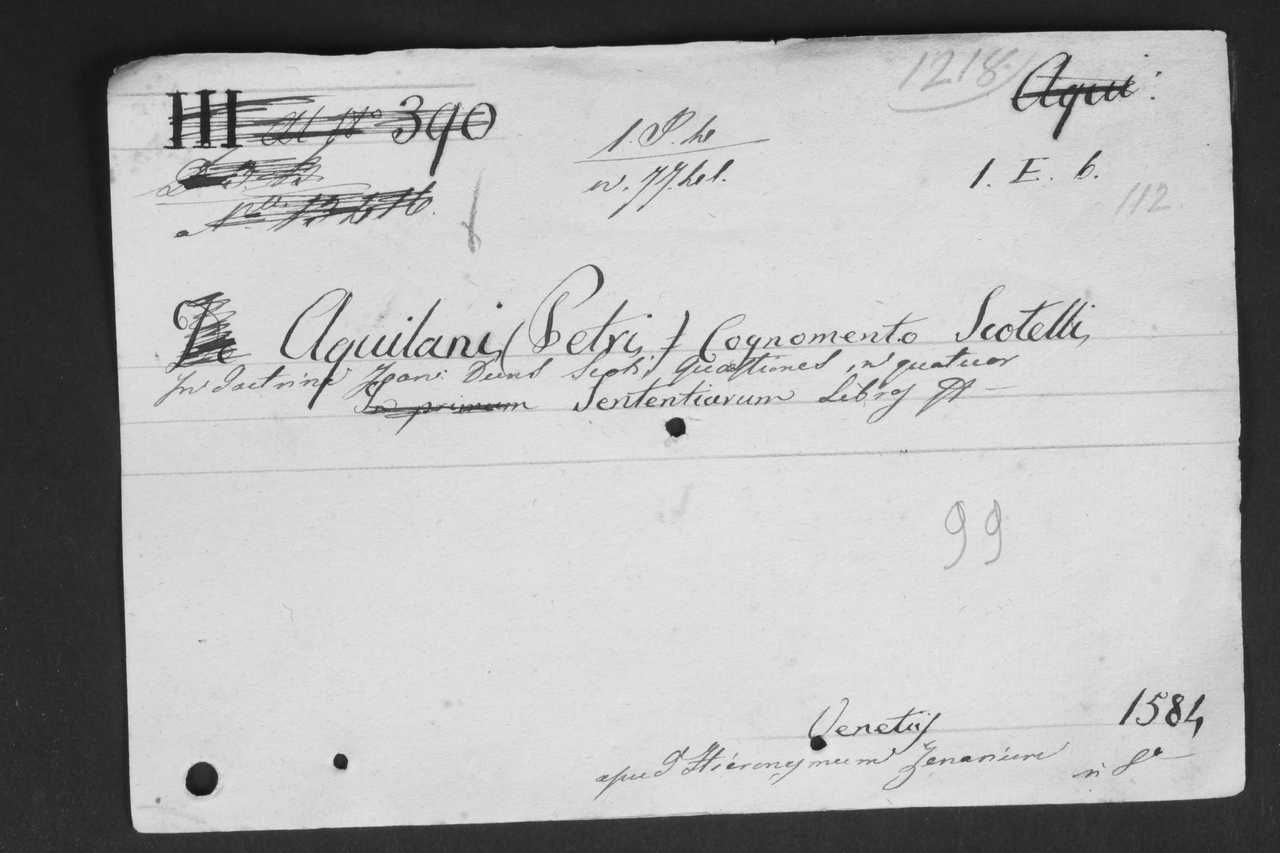 1218
Aqui:
III 390
1. P. he
n. 77. hel.
1. E. b.
112.
Nro. 13216.
Aquilani, (Petri,) Cognomento Scotelli,
In Doctrina Joan: Duns Scoti Quæstiones in quatuor
In primum Sententiarum Libros
99
Venetiis
1584,
apud Hieronymum Zenarium in 8o